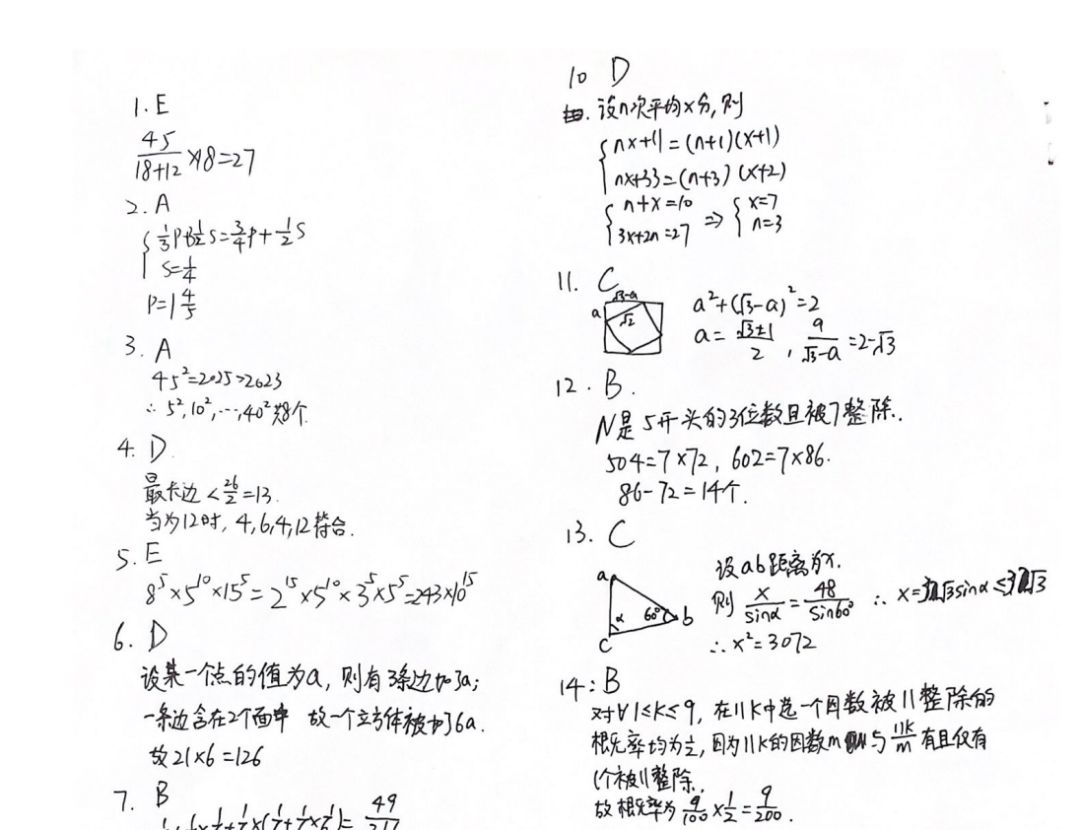 1. E
45/(18+12) ×18=27
2. A
{ 1/3 P+ 1/2 S = 3/4 P + 1/2 S
S=1/4
P=1 4/5
3. A
45²=2025>2023
∴ 5², 10², ⋯, 40² 共8个.
4. D.
最长边 < 26/2 =13.
当为12时, 4,6,4,12符合.
5. E
8⁵×5¹⁰×15⁵= 2¹⁵×5¹⁰×3⁵×5⁵=243×10¹⁵
6. D
设某一个点的值为a, 则有3条边加了a;
一条边含在2个面中 故一个立方体被加了6a.
故21×6=126
7. B
49
10 D
设n次平均x分, 则
{ nx+11=(n+1)(x+1)
nx+33=(n+3)(x+2)
{ n+x=10
3x+2n=27 ⇒ { x=7
n=3
11. C
√3-a
a √2
a²+(√3-a)²=2
a= (√3±1)/2 , a/(√3-a) =2-√3
12. B.
N是5开头的3位数且被7整除.
504=7×72, 602=7×86.
86-72=14个.
13. C
设ab距离为x.
a α 60° b c
则 x/sinα = 48/sin60° ∴ x=32√3sinα≤32√3
∴ x²=3072
14: B
对∀1≤K≤9, 在11K中选一个因数被11整除的
概率均为1/2, 因为11K的因数m与 11K/m 有且仅有
1个被11整除.
故概率为 9/100 × 1/2 = 9/200 .